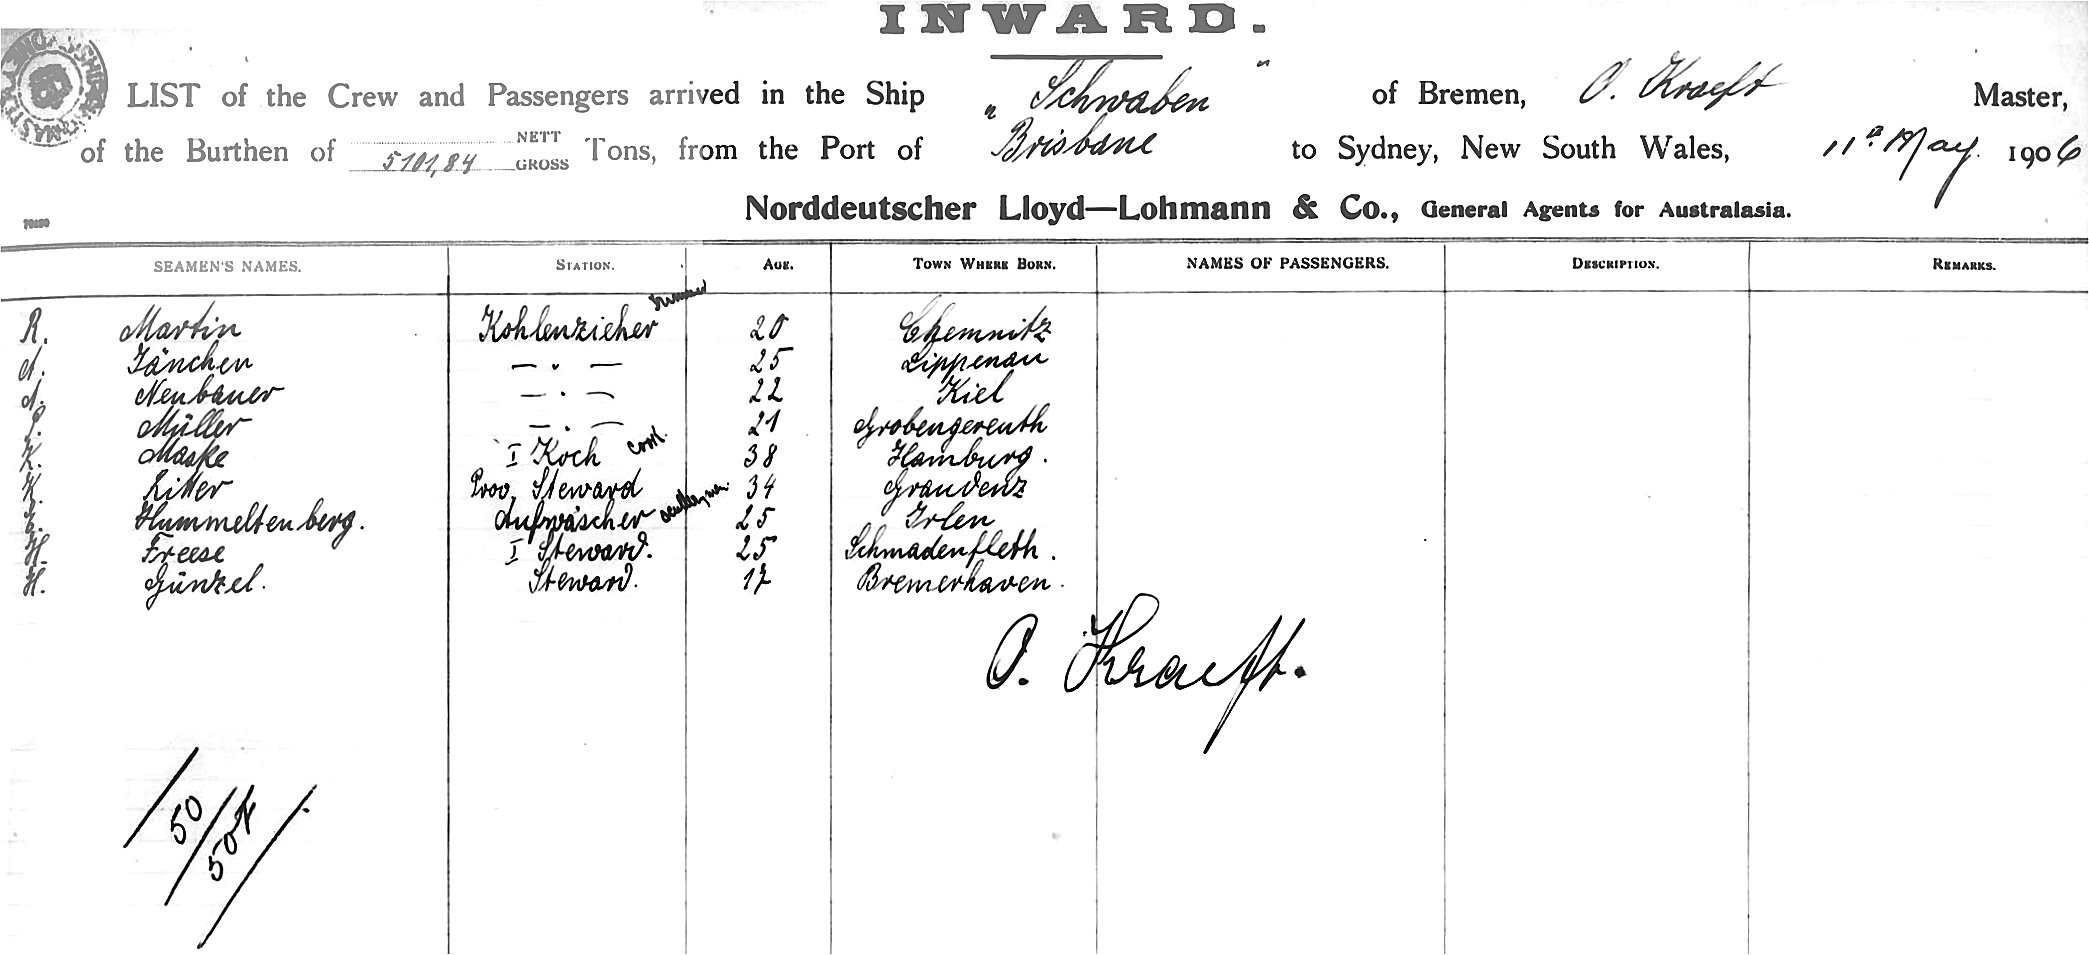 INWARD.
LIST of the Crew and Passengers arrived in the Ship „Schwaben" of Bremen, O. Kraeft Master,
of the Burthen of 5101,84 NETT GROSS Tons, from the Port of Brisbane to Sydney, New South Wales, 11th May. 1906
Norddeutscher Lloyd—Lohmann & Co., General Agents for Australasia.
SEAMEN'S NAMES. STATION. AGE. TOWN WHERE BORN. NAMES OF PASSENGERS. DESCRIPTION. REMARKS.
R. Martin Kohlenzieher trimmer 20 Chemnitz
A. Jänchen — . — 25 Lippenau
A. Neubauer — . — 22 Kiel
Müller — . — 21 Grobengereuth
K. Maske I Koch cook. 38 Hamburg.
K. Ritter Prov. Steward 34 Graudenz
Hummeltenberg. Aufwäscher 25 Irlen
H. Freese I Steward. 25 Schmadenfleth.
H. Günzel. Steward. 17 Bremerhaven.
O. Kraeft.
50
50